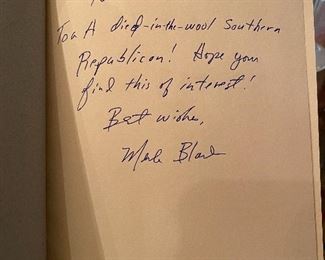 To a A died-in-the-wool Southern
Republican! Hope you
find this of interest!
Best wishes,
Merle Black